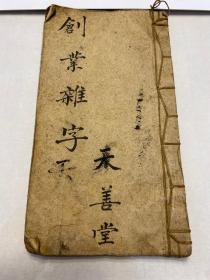 創業雜字
來善堂